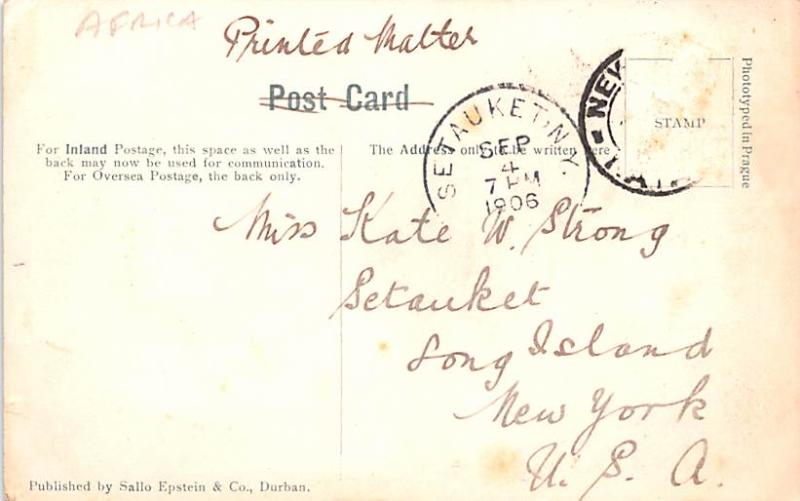 AFRICA
Printed Matter
Post Card
For Inland Postage, this space as well as the
back may now be used for communication.
For Oversea Postage, the back only.
The Address only to be written here
SETAUKET, N.Y.
SEP
4
7 PM
1906
NEW
STAMP
Phototyped in Prague
Miss Kate W. Strong
Setauket
Long Island
New York
U. S. A.
Published by Sallo Epstein & Co., Durban.